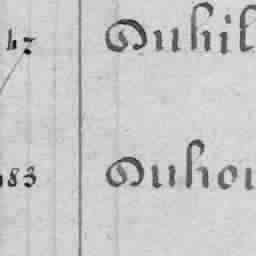 47 Duhil
183 Duhou